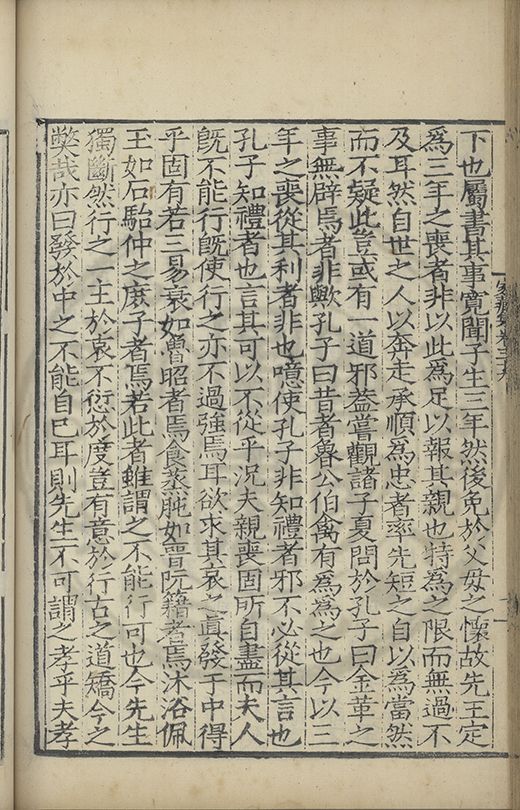 下也屬書其事寛聞子生三年然後免於父母之懷故先王定
為三年之喪者非以此為足以報其親也特為之限而無過不
及耳然自世之人以奔走承順為忠者率先短之自以為當然
而不疑此豈或有一道邪葢嘗觀諸子夏問於孔子曰金革之
事無辟焉者非歟孔子曰昔者魯公伯禽有為為之也今以三
年之喪從其利者非也噫使孔子非知禮者邪不必從其言也
孔子知禮者也言其可以不從乎况夫親喪固所自盡而夫人
旣不能行旣使行之亦不過強焉耳欲求其哀之眞發于中得
乎固有若三易衰如魯昭者焉食蒸肫如晉阮籍者焉沐浴佩
玉如石駘仲之庶子者焉若此者雖謂之不能行可也今先生
獨斷然行之一主於哀不愆於度豈有意於行古之道矯今之
獘哉亦曰發於中之不能自已耳則先生不可謂之孝乎夫孝